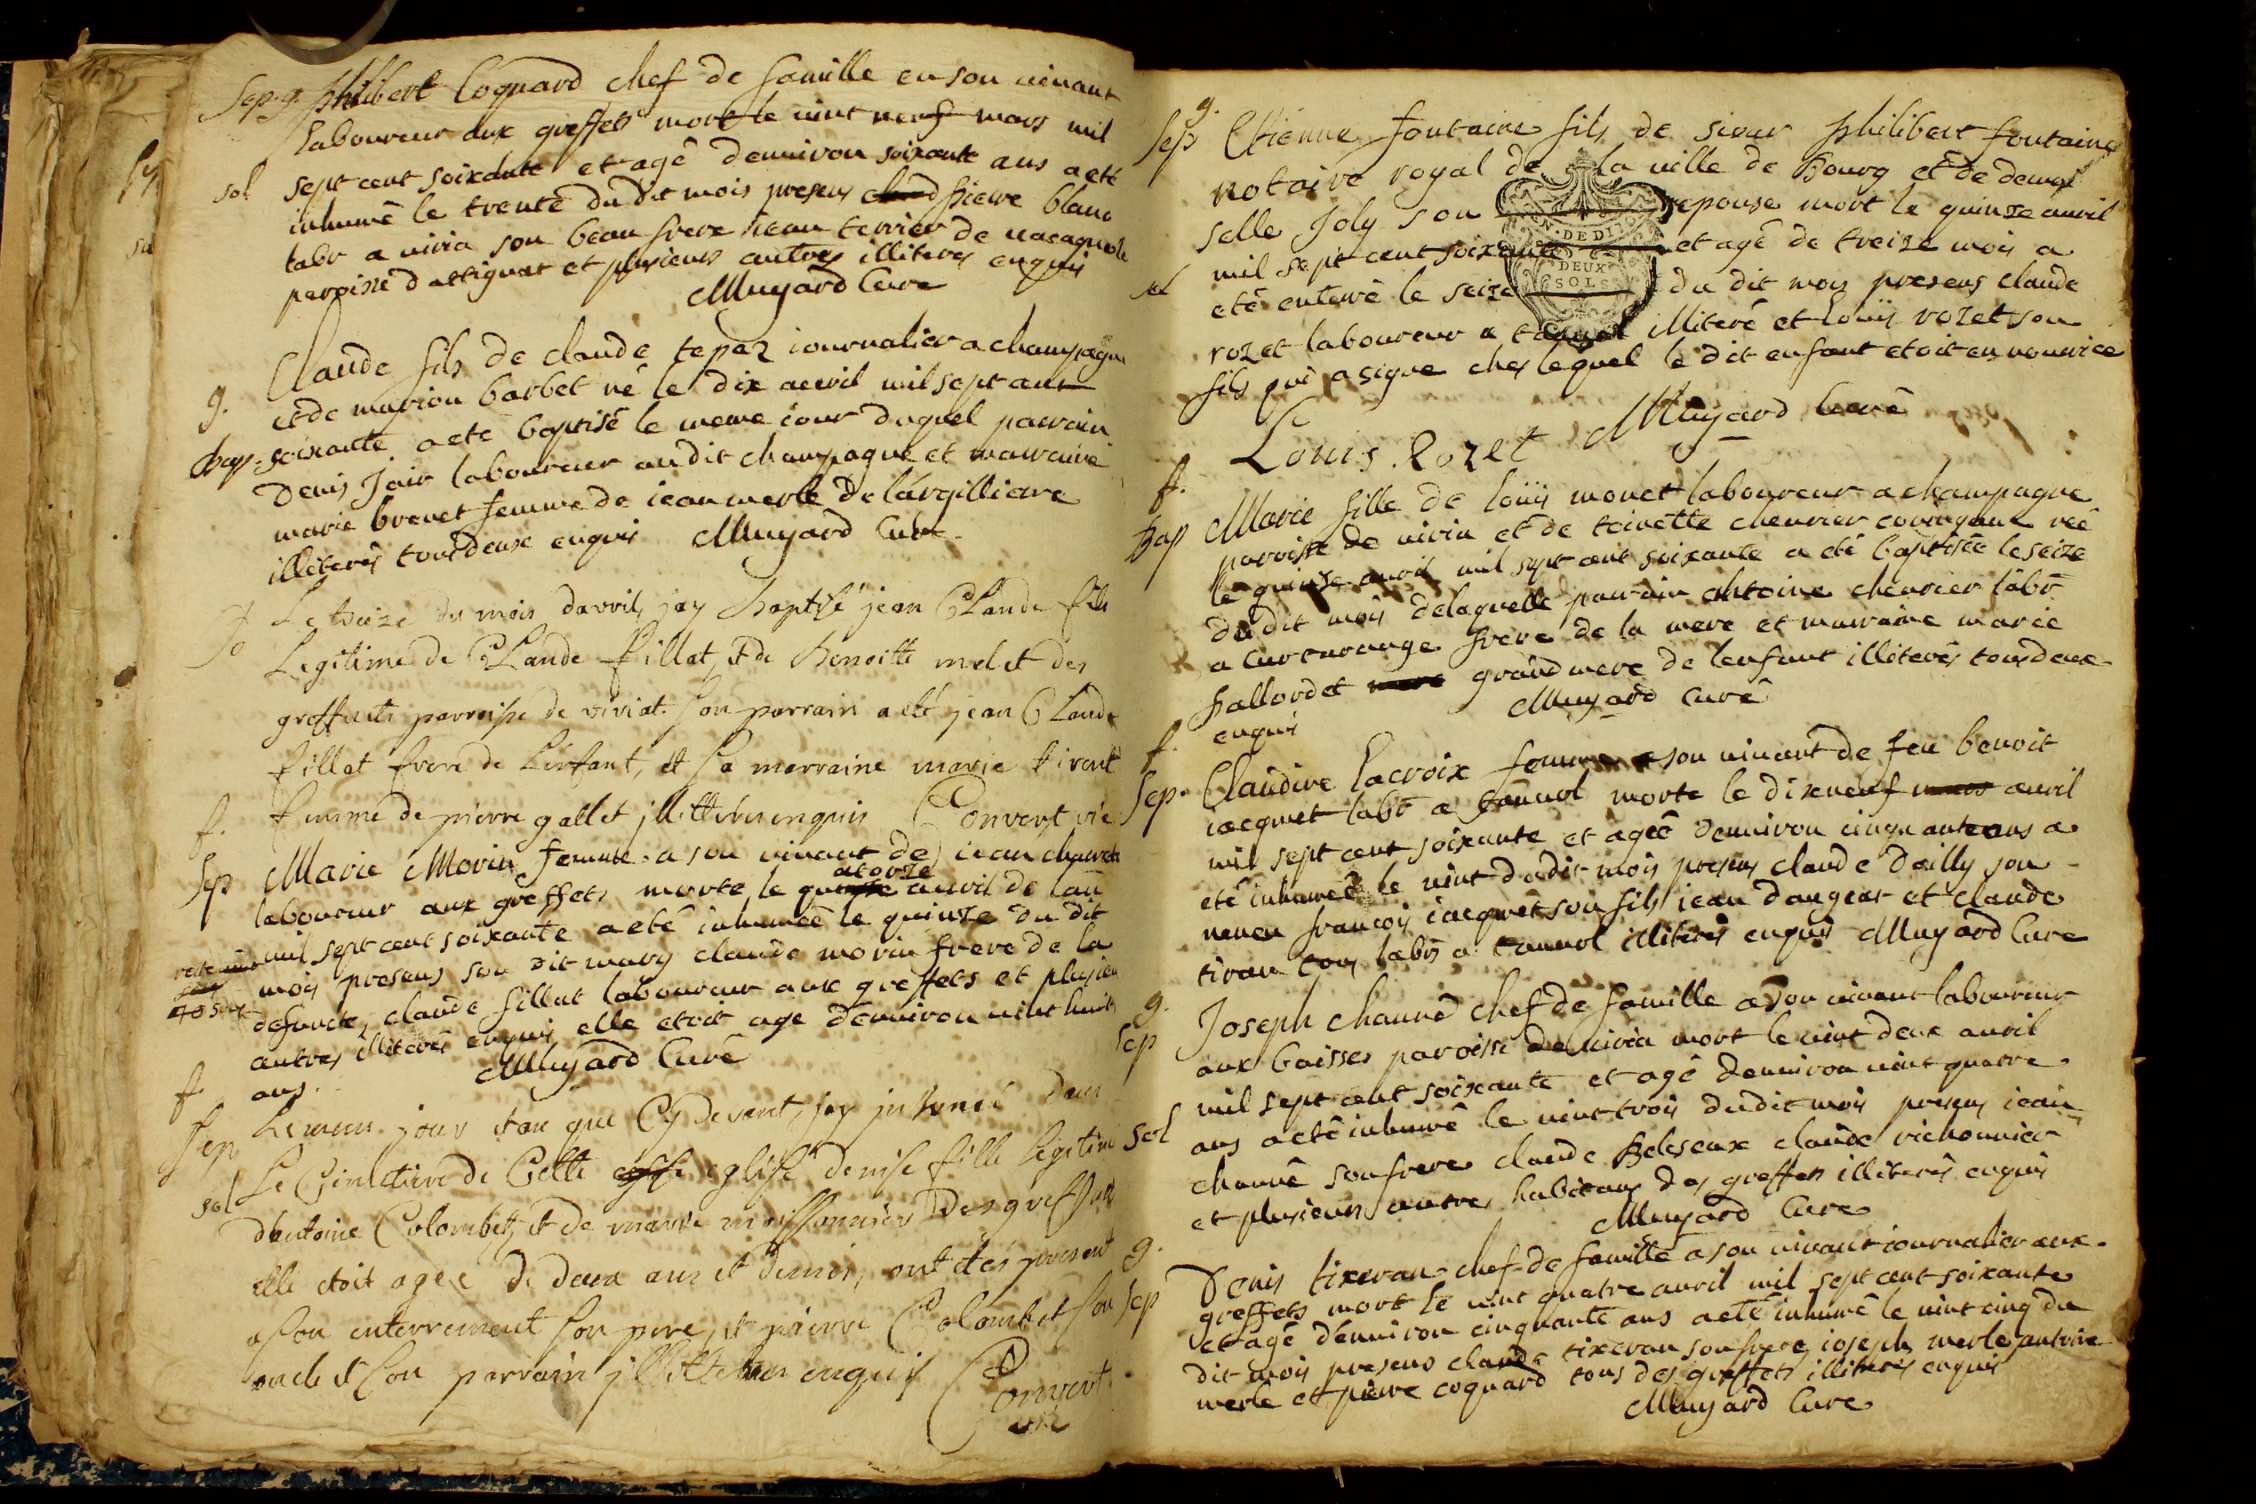 Sep. g. philibert Coquard chef de famille en son vivant
laboureur aux greffets mort le vint neuf mars mil
sol sept cent soixante et agé denviron soixante ans a eté
inhumé le trente du dit mois presens pierre blanc
labr a viria son beau frere iean terrier de
paroisse dattignat et plusieurs autres illiteres enquis
Mugard Cure
Claude fils de claude tepaz iournalier a champagne
g. et de marion barbet né le dix avril mil sept cent
bap. soixante a eté baptisé le meme iour duquel parrain
Denis Jair laboureur au dit champagne et marraine
marie brevet femme de iean merle de largilliere
illiterés tous deux enquis Mugard Curé
Le treize du mois davril jay baptisé jean CLaude fils
Legitime de CLaude fillat, et de Benoitte molet des
greffets parroisse de viriat. Son parrain a eté jean CLaude
fillat frere de Lenfant, et Sa marraine marie tirent
f. femme de pierre gallet jllitteres enquis Convert vic
Sep Marie Morin femme a son vivant de iean
atorze
laboureur aux greffets morte le avril de lan
mil sept cent soixante a eté inhumée le quinze du dit
mois presens son dit mary claude morin frere de la
defuncte, claude fillat laboureur aux greffets et plusieurs
autres illiterés enquis elle etoit age denviron vint huit
ans. Mugard Curé
f.
Sep Le meme jour et an que Cy devant, jay jnhumé dans
Le Cimetiere de Cette eglise denise fille Legitime
sol dantoine Colombet, et de marie moissonnier des greffets
elle etoit agee de deux ans et demis, ont etés present
a Son enterrement Son pere, et pierre Colombet Son
oncle et Son parrain jllitteres enquis Convert
vic
g.
Sep Etienne fontaine fils de sieur philibert fontaine
notaire royal de la ville de Bourg et de demoi
selle Joly son epouse mort le quinze avril
mil sept cent soixante et agé de treize mois a
sol eté enterré le seize du dit mois presens claude
rozet laboureur a illiteré et Louis rozet son
fils qui a signe ches lequel le dit enfant etoit en nourrice
Louis Rozet Mugard Curé
GEN. DE DI
DEUX
SOLS
f.
Bap Marie fille de louis monet laboureur a champagne
paroisse de viria et de toinette chevrier née
le quinze avril mil sept cent soixante a eté baptisée le seize
du dit mois de laquelle parrain antoine chevrier labr
a frere de la mere et marraine marie
pallordet grand mere de lenfant illiterés tous deux
enquis Mugard Curé
f.
Sep. Claudine Lacroix femme a son vivant de feu benoit
iacquet labr a tannol morte le dix neuf avril
mil sept cent soixante et agée denviron cinquante ans a
eté inhumée le vint du dit mois presens claude dailly son
neveu francois iacquet son fils iean dangeat et claude
tiran tous labrs a tannol illiterés enquis Mugard Cure
g.
Sep Joseph chanué chef de famille a son vivant laboureur
aux baisses paroisse de viria mort le vint deux avril
mil sept cent soixante et agé denviron vint quatre
ans a eté inhumé le vint trois du dit mois presens iean
sol chanué son frere claude claude richonnier
et plusieurs autres habitans des greffets illiterés enquis
Mugard Cure
g.
Sep Denis tixeran chef de famille a son vivant iournalier aux
greffets mort le vint quatre avril mil sept cent soixante
et agé denviron cinquante ans a eté inhumé le vint cinq du
dit mois presens claude tixeran son frere ioseph merle antoine
merle et pierre coquard tous des greffets illiterés enquis
Mugard Cure